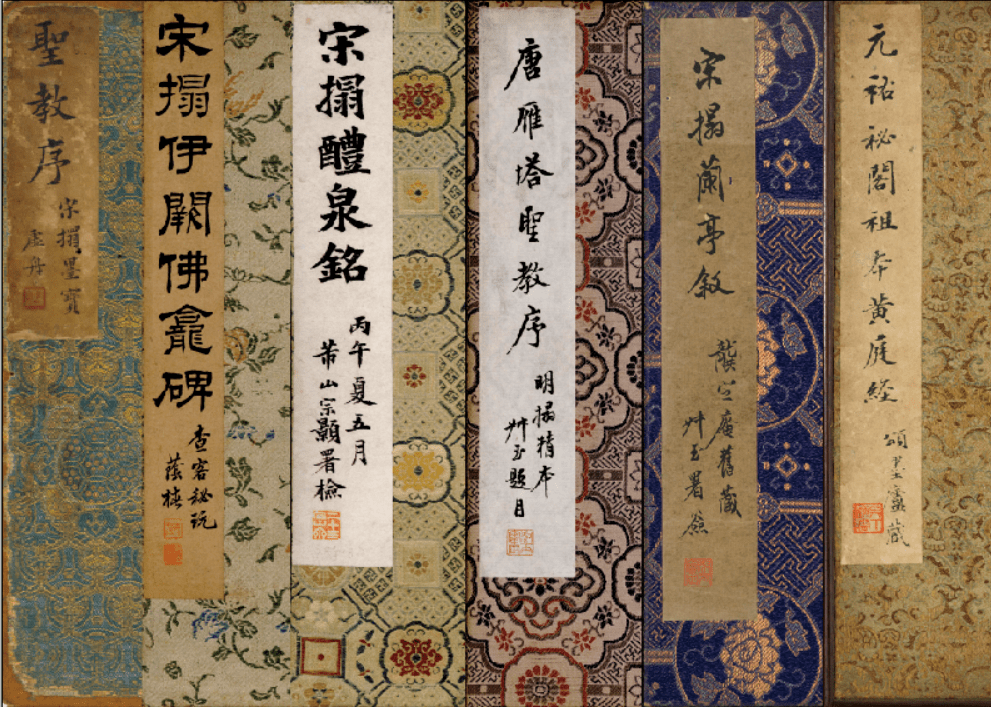 聖教序
宋搨墨寶
虛舟
宋搨伊闕佛龕碑
查客秘玩
宋搨醴泉銘
丙午夏五月
芾山宗顥署檢
唐雁塔聖教序
明搨精本
艸玉題目
宋搨蘭亭敘
龔定舊藏
艸玉署簽
元祐祕閣祖本黃庭経
頌藏